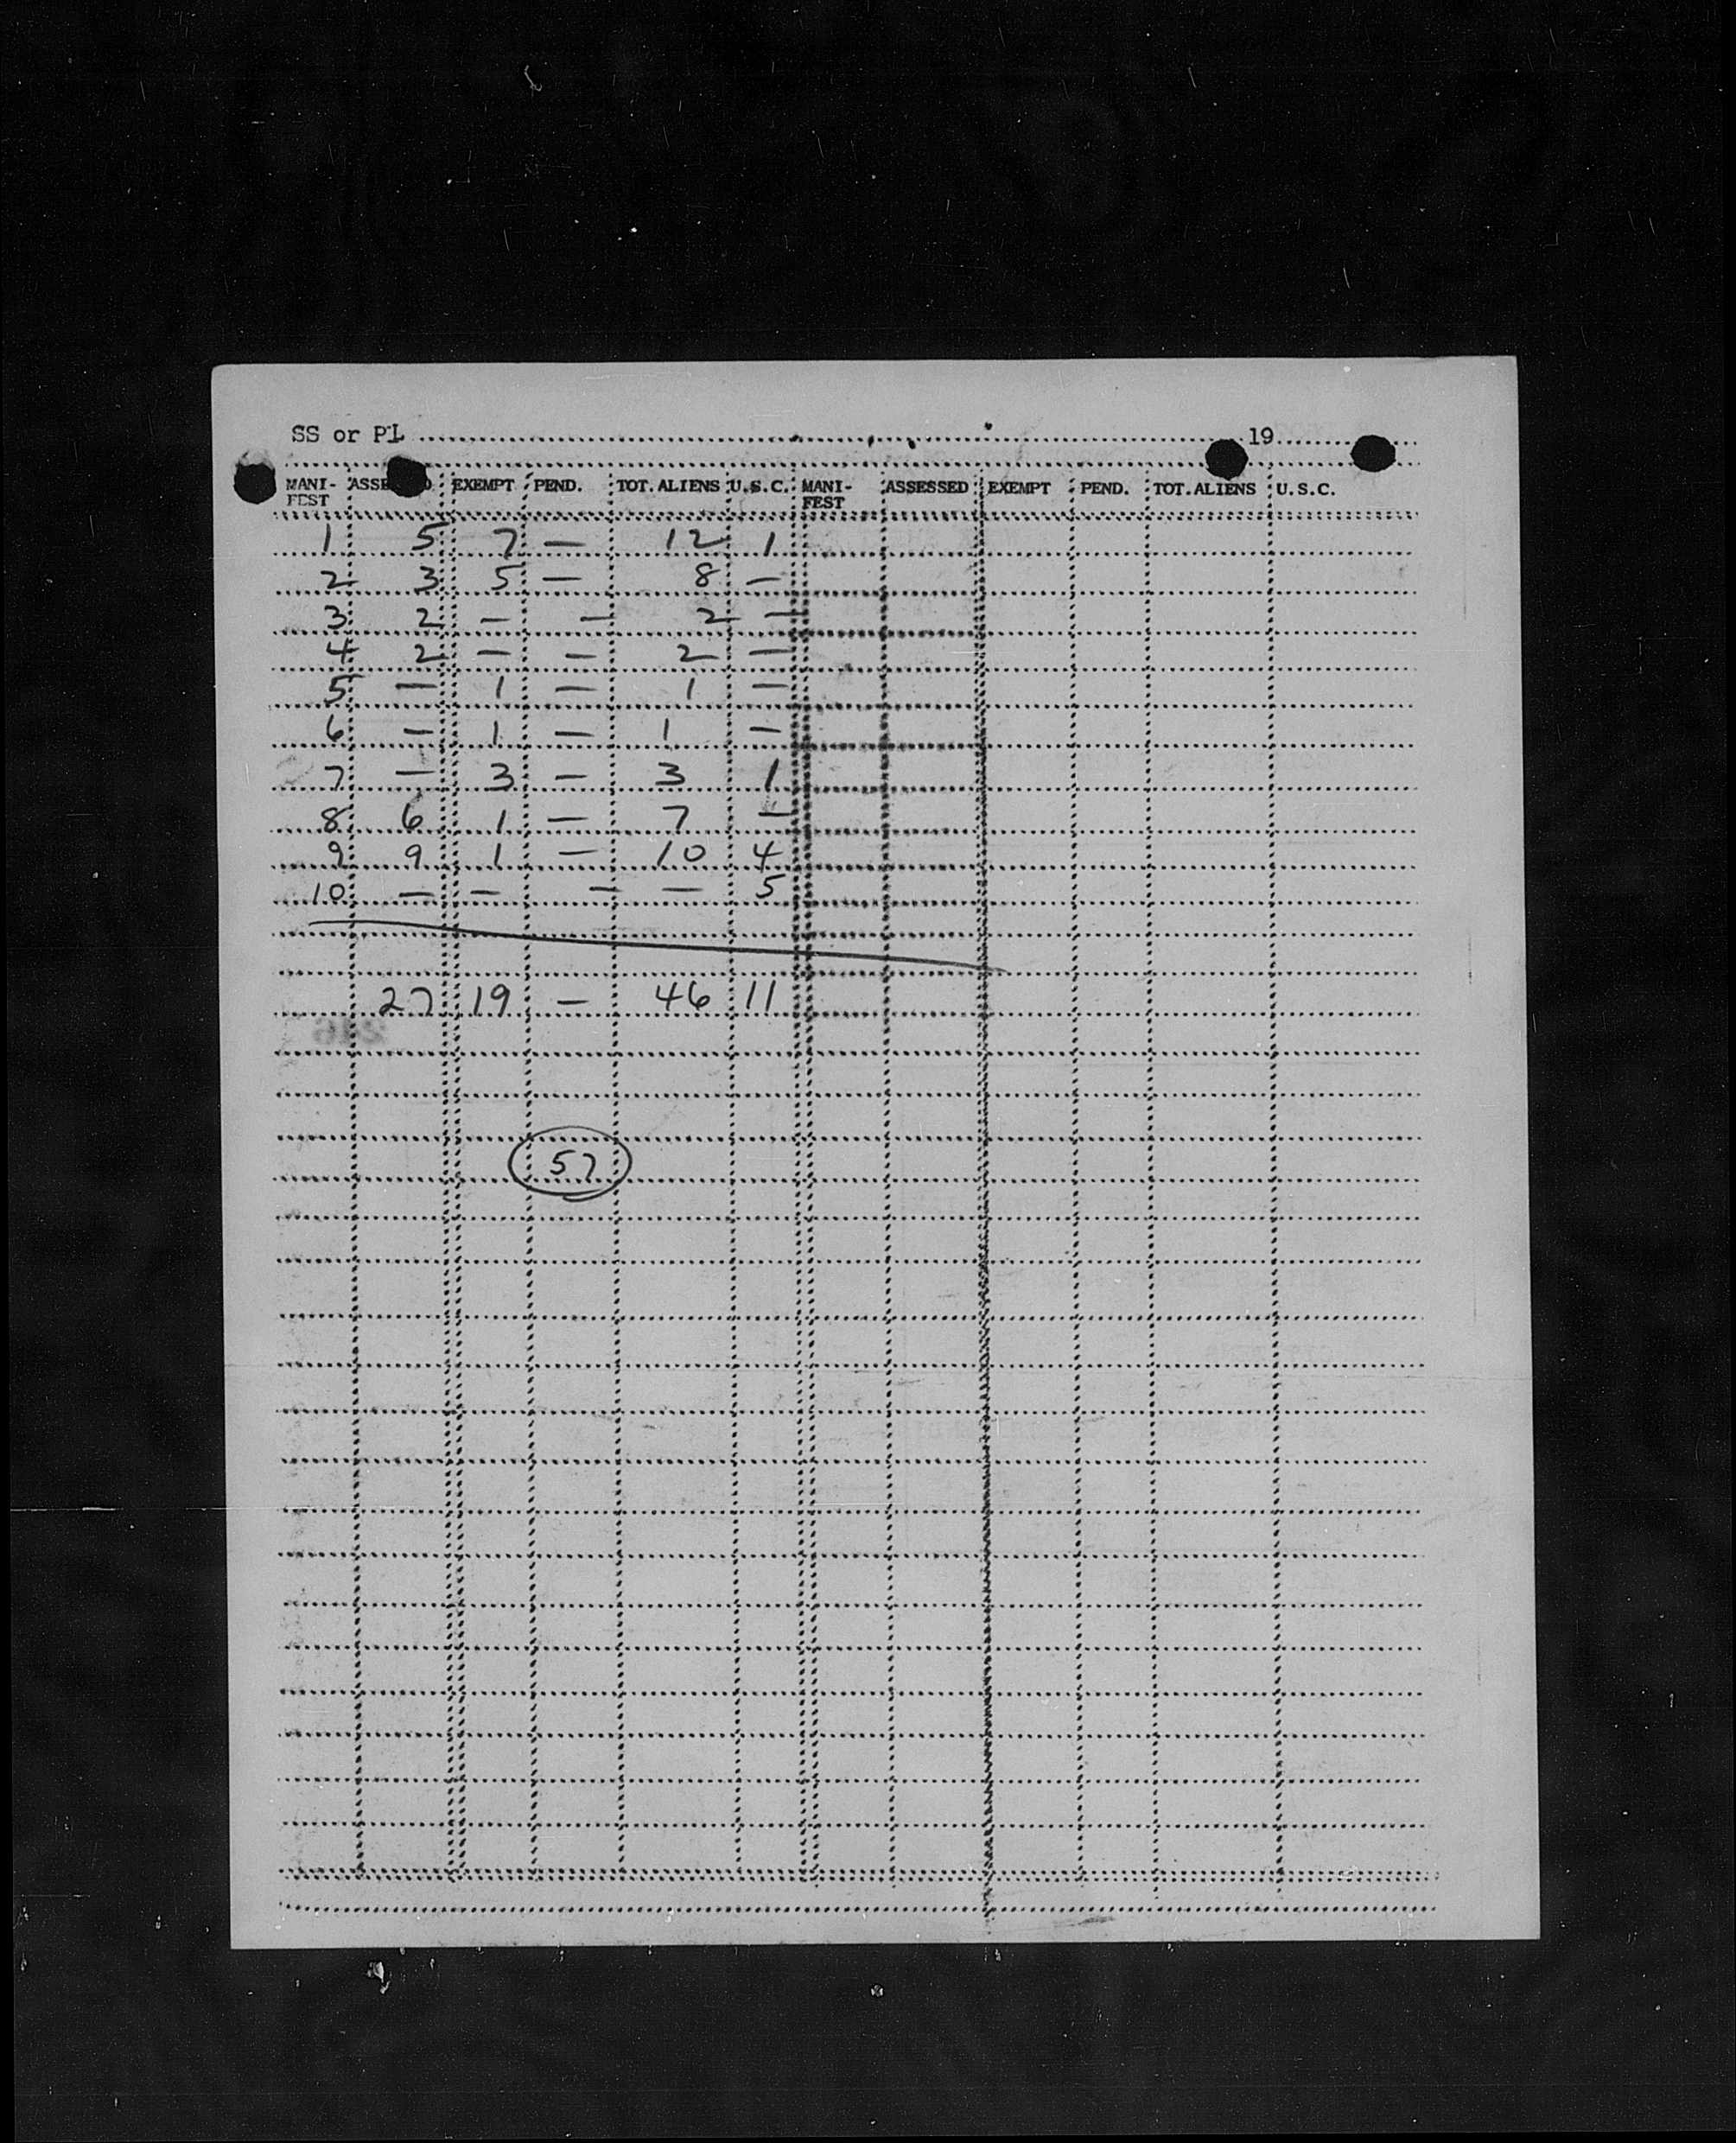 SS or PL 19
MANI- ASSE D EXEMPT PEND. TOT. ALIENS U.S.C. MANI- ASSESSED EXEMPT PEND. TOT. ALIENS U.S.C.
FEST FEST
1 5 7 — 12 1
2 3 5 — 8 —
3 2 — — 2 —
4 2 — — 2 —
5 — 1 — 1 —
6 — 1 — 1 —
7 — 3 — 3 1
8 6 1 — 7 —
9 9 1 — 10 4
10 — — — — 5
27 19 — 46 11
57